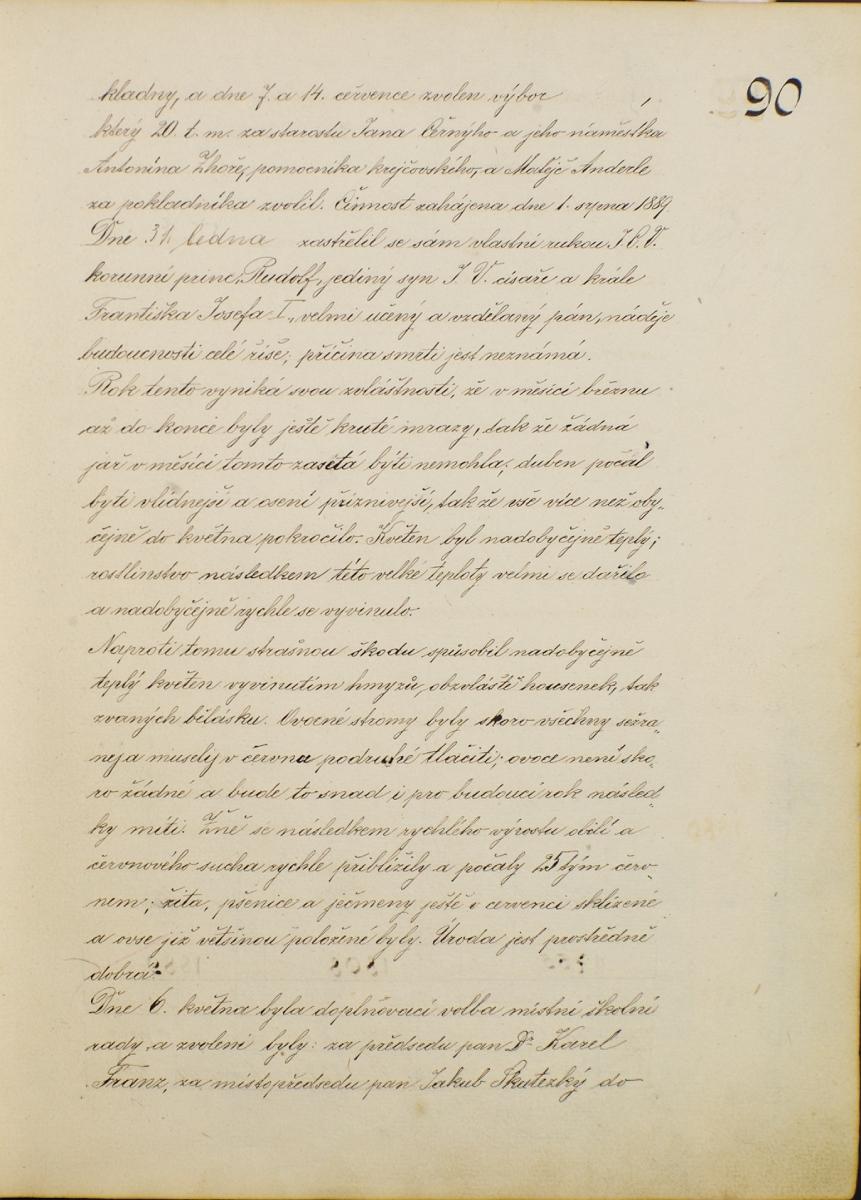 90
kladny, a dne 7. a 14. července zvolen výbor,
který 20. t. m. za starostu Jana Černýho a jeho náměstka
Antonína Zhoře, pomocníka krejčovského, a Matěje Anderle
za pokladníka zvolil. Činnost zahájena dne 1. srpna 1889.
Dne 31. ledna zastřelil se sám vlastní rukou J. C. V.
korunní princ Rudolf, jediný syn J. V. císaře a krále
Františka Josefa I., velmi učený a vzdělaný pán, náděje
budoucnosti celé říše; příčina smrti jest neznámá.
Rok tento vyniká svou zvláštností, že v měsíci březnu
až do konce byly ještě kruté mrazy, tak že žádná
jař v měsíci tomto zasetá býti nemohla; duben počal
byti vlídnejší a osení příznivejší, tak že vše více než oby-
čejně do května pokročilo. Květen byl nadobyčejně teplý;
rostlinstvo následkem této velké teploty velmi se dařilo
a nadobyčejně rychle se vyvinulo.
Naproti tomu strašnou škodu spůsobil nadobyčejně
teplý květen vyvinutím hmyzů, obzvláště housenek, tak
zvaných bělásku. Ovocné stromy byly skoro všechny sežra-
ne, a musely v červnu podruhé tlačiti; ovoce není sko-
ro žádné a bude to snad i pro budoucí rok násled-
ky míti. Žně se následkem rychlého výrostu obilí a
červnového sucha rychle přiblížily a počaly 25tým červ-
nem; žita, pšenice a ječmeny ještě v červenci sklizené
a ovse již větsinou položené byly. Úroda jest prostředně
dobrá.
Dne 6. května byla doplňovací volba místní školní
rady, a zvoleni byly: za předsedu pan Dr. Karel
Franz, za místopředsedu pan Jakub Skutezký do